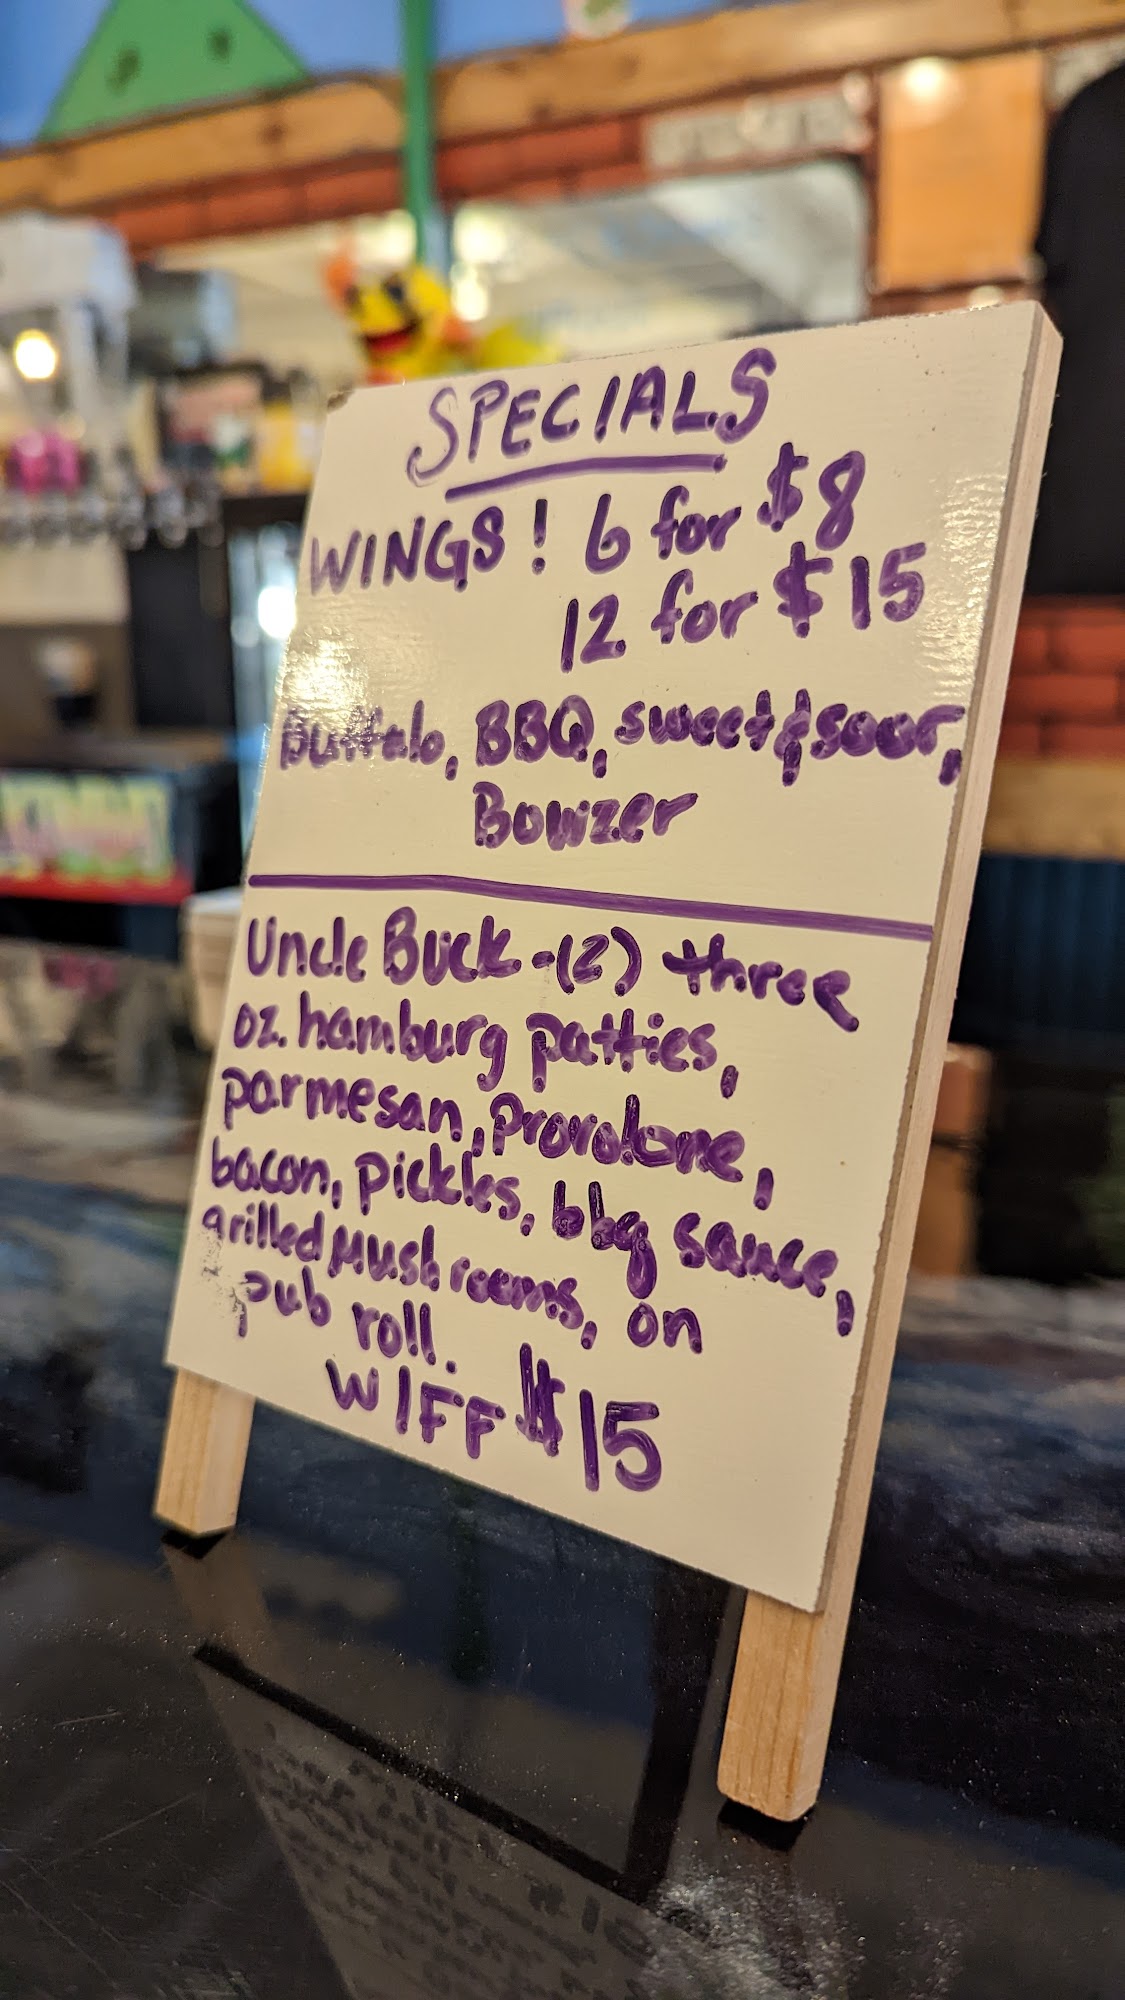 SPECIALS
WINGS! 6 for $8
12 for $15
Buffalo, BBQ, sweet & sour,
Bowzer
Uncle Buck -(2) three
oz. hamburg patties,
parmesan, provolone,
bacon, pickles, bbq sauce,
grilled mushrooms, on
pub roll.
W/FF $15